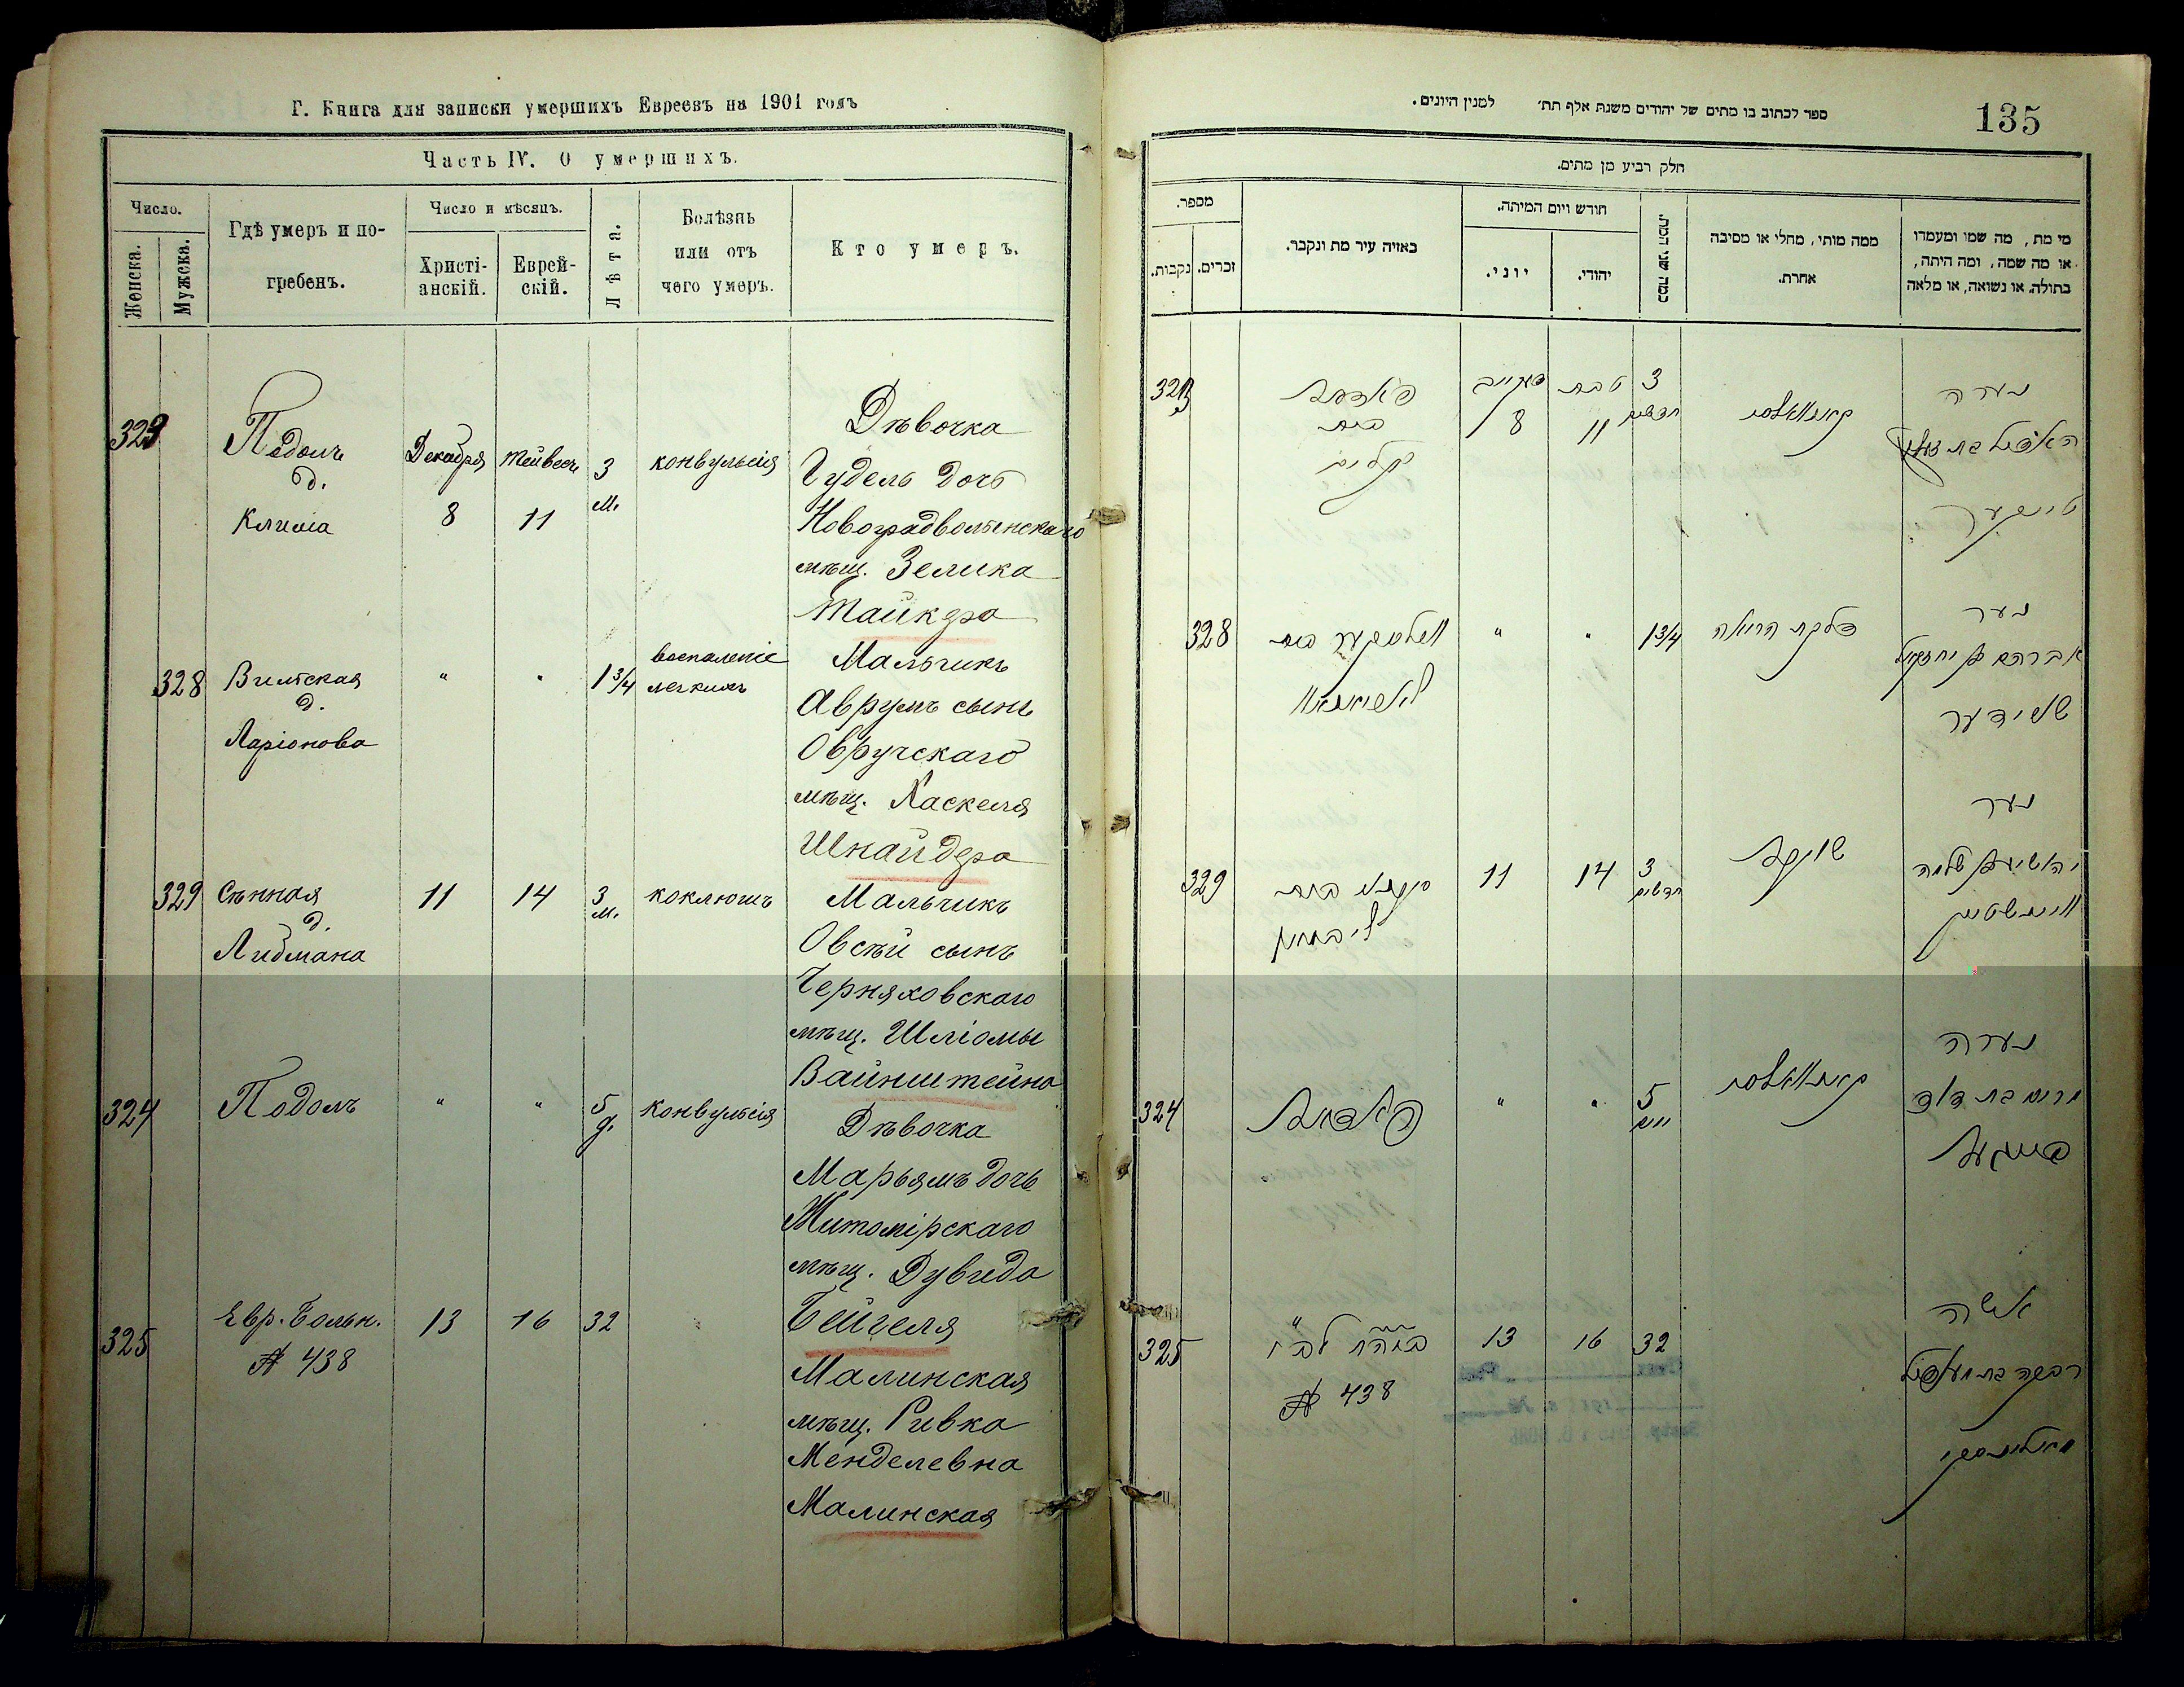 Г. Книга для записки умершихъ Евреевъ на 1901 годъ
Часть IV. О умершихъ.
Число.
Женска.
Мужска.
Гдѣ умеръ и по-
гребенъ.
Число и мѣсяцъ.
Христі-
анскій.
Еврей-
скій.
Лѣта.
Болѣзнь
или отъ
чего умеръ.
Кто умеръ.
323
Подолъ
д.
Клима
Декабря
8
Тейвесъ
11
3
м.
конвульсія
Дѣвочка
Гудель дочь
Новоградволынскаго
мѣщ. Зелика
Тайкера
328
Вильская
д.
Ларіонова
"
"
1 3/4
воспаленіе
легкихъ
Мальчикъ
Аврумъ сынъ
Овручскаго
мѣщ. Хаскеля
Шнайдера
329
Сѣнная
д.
Либмана
11
14
3
м.
коклюшъ
Мальчикъ
Овсѣй сынъ
Черняховскаго
мѣщ. Шліомы
Вайнштейна
324
Подолъ
"
"
5
д.
конвульсія
Дѣвочка
Марьямъ дочь
Житомірскаго
мѣщ. Дувида
Бейгеля
325
Евр. Больн.
№ 438
13
16
32
Малинская
мѣщ. Ривка
Менделевна
Малинская
ספר לכתוב בו מתים של יהודים משנת אלף תת׳ למנין היונים.
135
חלק רביע מן מתים.
מספר.
נקבות.
זכרים.
באיזה עיר מת ונקבר.
חודש ויום המיתה.
יוני.
יהודי.
כמה שני המת.
ממה מותי, מחלי או מסיבה
אחרת.
מי מת, מה שמו ומעמדו
או מה שמה, ומה היתה,
בתולה, או נשואה, או מלאה
323
פאדאל
בית
קלים
8
טבת
11
3
חדשים
נערה
328
בית
"
"
1 3/4
דלקת הריאה
נער
אברהם בן יחזקאל
שניידער
329
בית
ליבמאן
11
14
3
חדשים
נער
יהושע בן שלמה
וויינשטיין
324
פאדאל
"
"
5
ימים
נערה
מרים בת דוד
בייגעל
325
№ 438
13
16
32
אשה
רבקה בת מענדיל
מאלינסקי